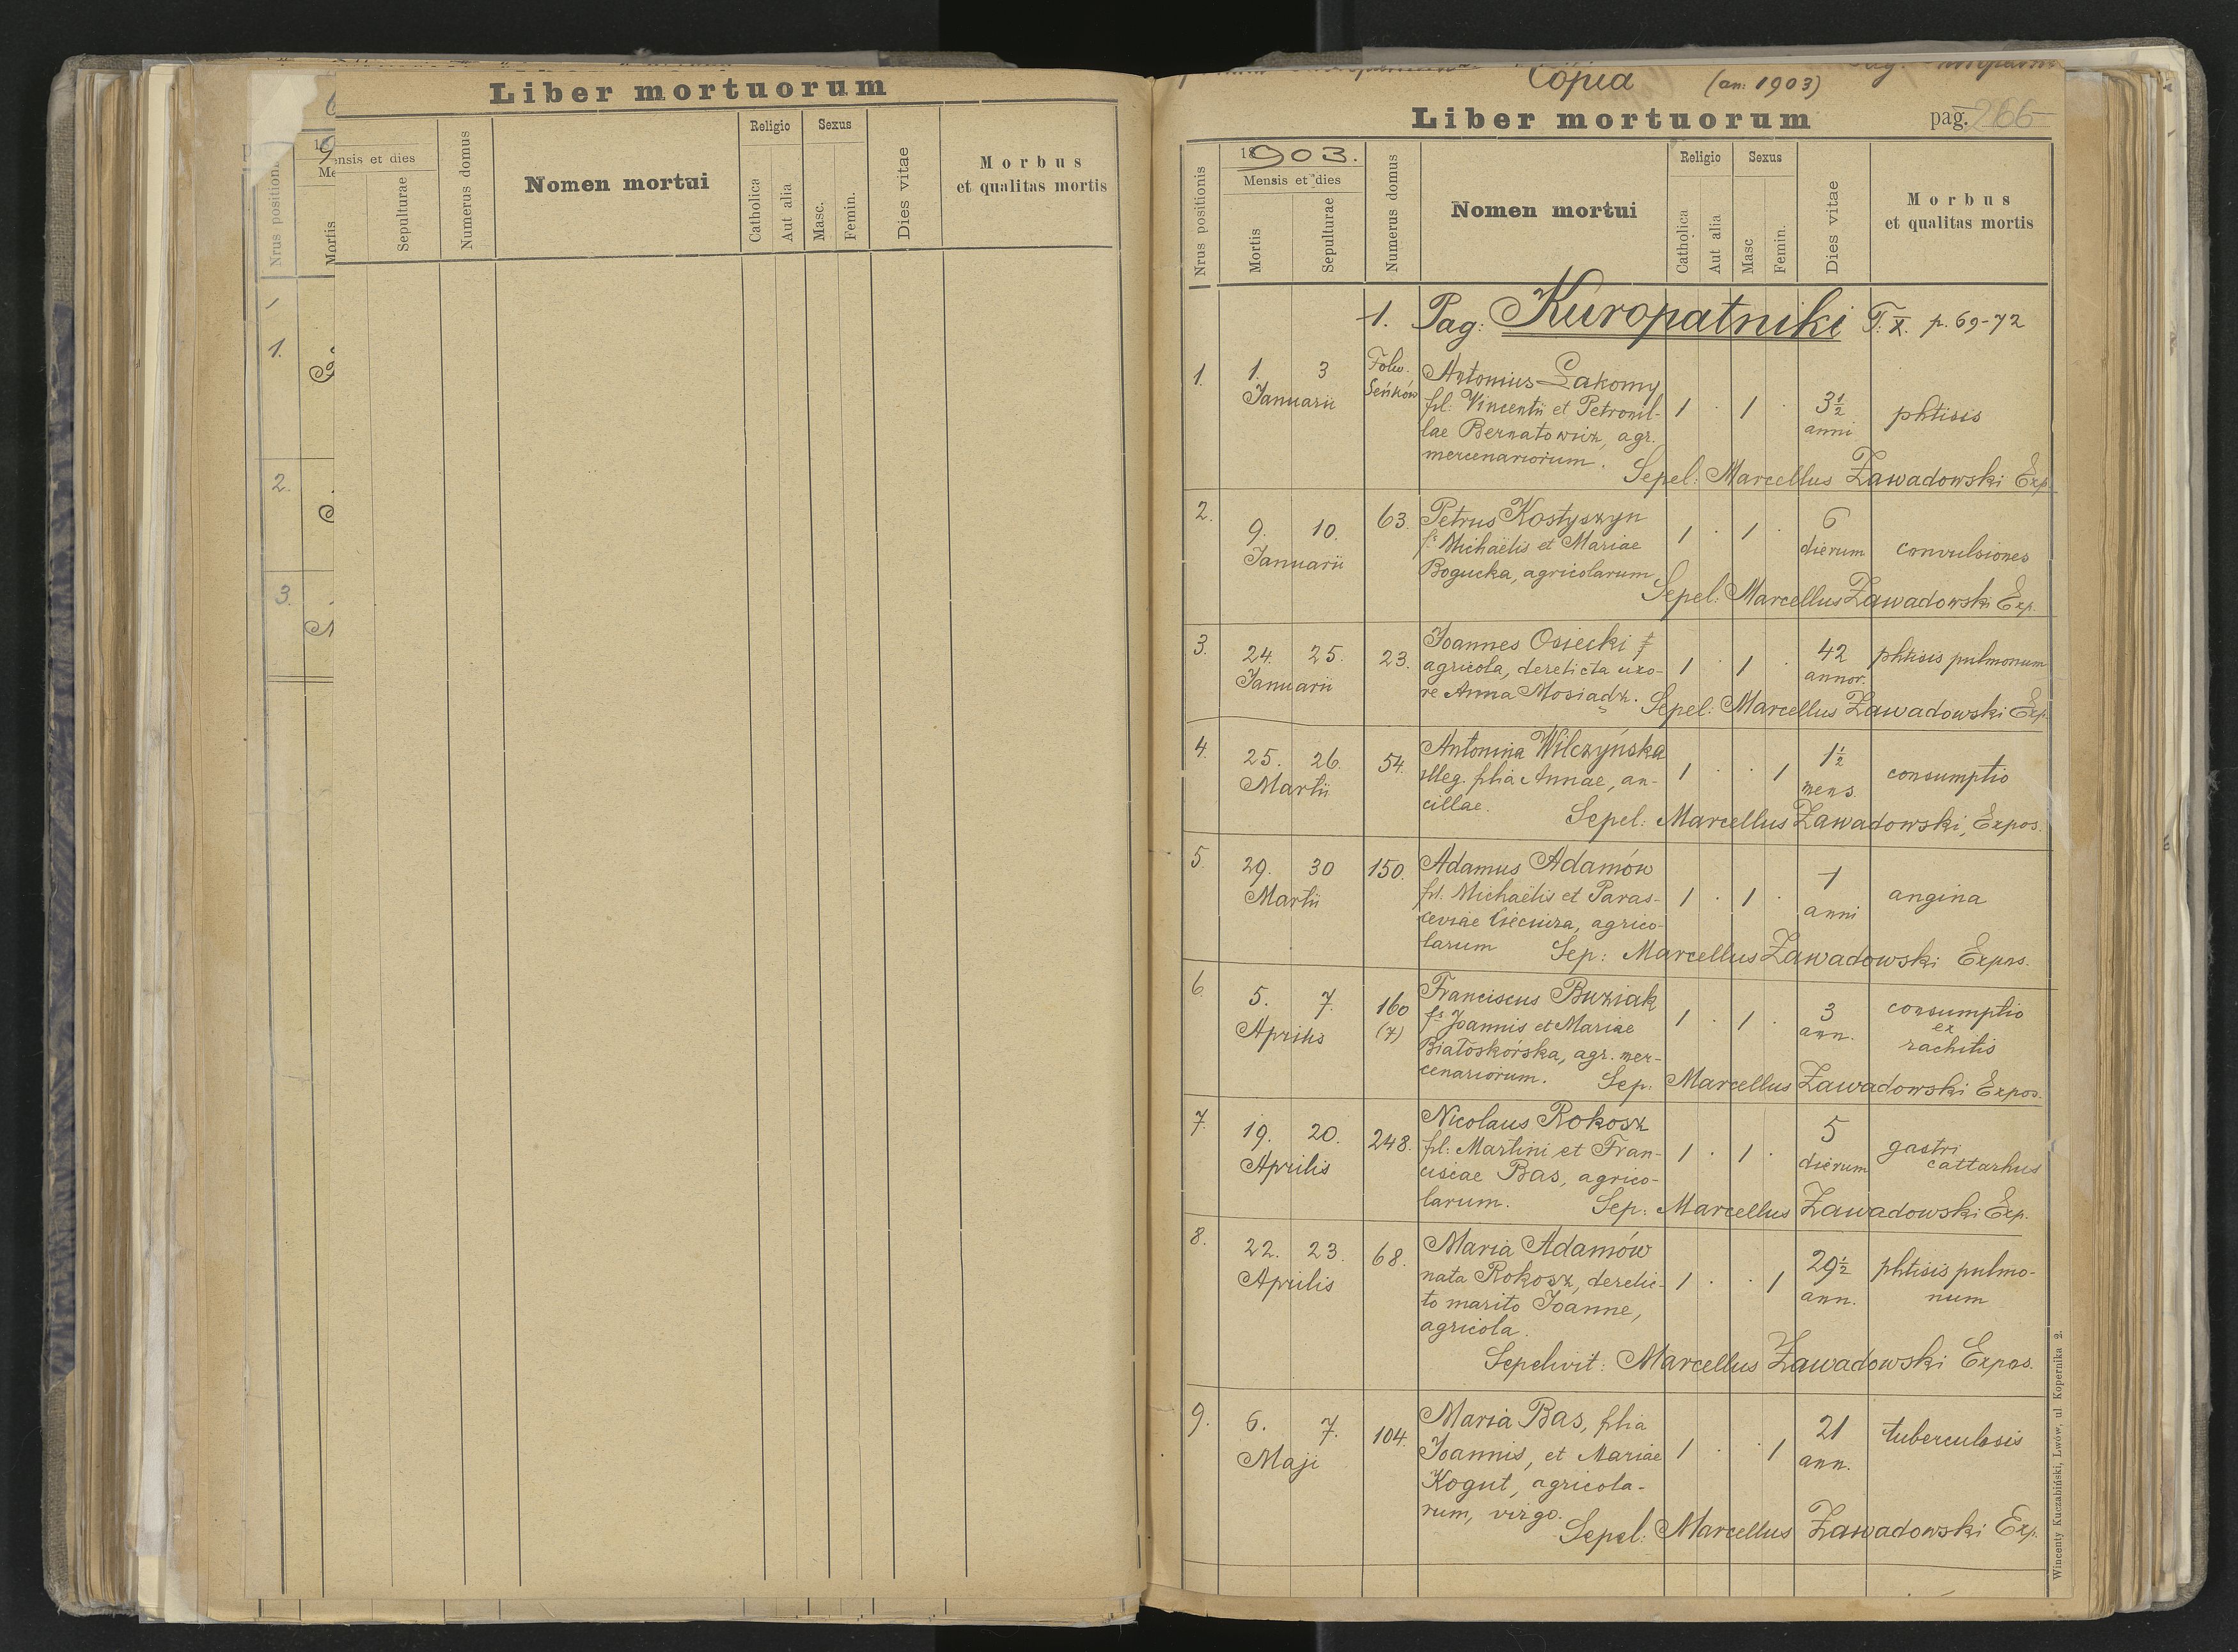 Liber mortuorum
Religio
Sexus
Mensis et dies
Nrus positionis
Mortis
Sepulturae
Numerus domus
Nomen mortui
Catholica
Aut alia
Masc.
Femin.
Dies vitae
Morbus
et qualitas mortis
1.
2.
3.
Copia (an: 1903)
Liber mortuorum
pag. 266
1903.
Mensis et dies
Religio
Sexus
Nrus positionis
Mortis
Sepulturae
Numerus domus
Nomen mortui
Catholica
Aut alia
Masc
Femin.
Dies vitae
Morbus
et qualitas mortis
1. Pag: Kuropatniki T. X. p. 69-72
1. 1. 3 Folw. Antonius Łakomy
Januarii Seńków fil: Vincentii et Petronil- 1 . 1 . 3½ phtisis
lae Bernatowicz, agr. anni
mercenariorum.
Sepel: Marcellus Zawadowski Exp.
2. 9. 10. 63. Petrus Kostyszyn 1 . 1 . 6
Januarii f. Michaëlis et Mariae dierum convulsiones
Bogucka, agricolarum
Sepel: Marcellus Zawadowski Exp.
3. 24. 25. 23. Joannes Osiecki
Januarii agricola, derelicta uxo- 1 . 1 . 42 phtisis pulmonum
re Anna Mosiądz. annor.
Sepel: Marcellus Zawadowski Exp.
4. 25. 26. 54. Antonina Wilczyńska
Martii illeg. filia Annae, an- 1 . . 1 1½ consumptio
cillae. mens.
Sepel: Marcellus Zawadowski, Expos.
5. 29. 30 150. Adamus Adamów
Martii fil. Michaëlis et Paras- 1 . 1 . 1 angina
ceviae Ciecura, agrico- anni
larum
Sep: Marcellus Zawadowski Expos.
6. 5. 7. 160 Franciscus Buziak
Aprilis (7) f. Joannis et Mariae 1 . 1 . 3 consumptio
Białoskórska, agr. mer- ann. ex
cenariorum. rachitis
Sep: Marcellus Zawadowski Expos.
7. 19. 20. 248. Nicolaus Rokosz
Aprilis fil: Martini et Fran- 1 . 1 . 5 gastri
ciscae Bas, agrico- dierum cattarhus
larum.
Sep: Marcellus Zawadowski Exp.
8. 22. 23. 68. Maria Adamów
Aprilis nata Rokosz, derelic- 1 . . 1 29½ phtisis pulmo-
to marito Joanne, ann. num
agricola.
Sepelivit: Marcellus Zawadowski Expos.
9. 6. 7. 104. Maria Bas, filia
Maji Joannis, et Mariae 1 . . 1 21 tuberculosis
Kogut, agricola- ann.
rum, virgo.
Sepel: Marcellus Zawadowski Exp.
Wincenty Kuczabiński, Lwów, ul. Kopernika 2.